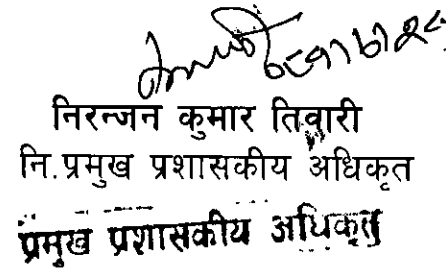 निरन्जन कुमार तिवारी
नि.प्रमुख प्रशासकीय अधिकृत
प्रमुख प्रशासकीय अधिकृत